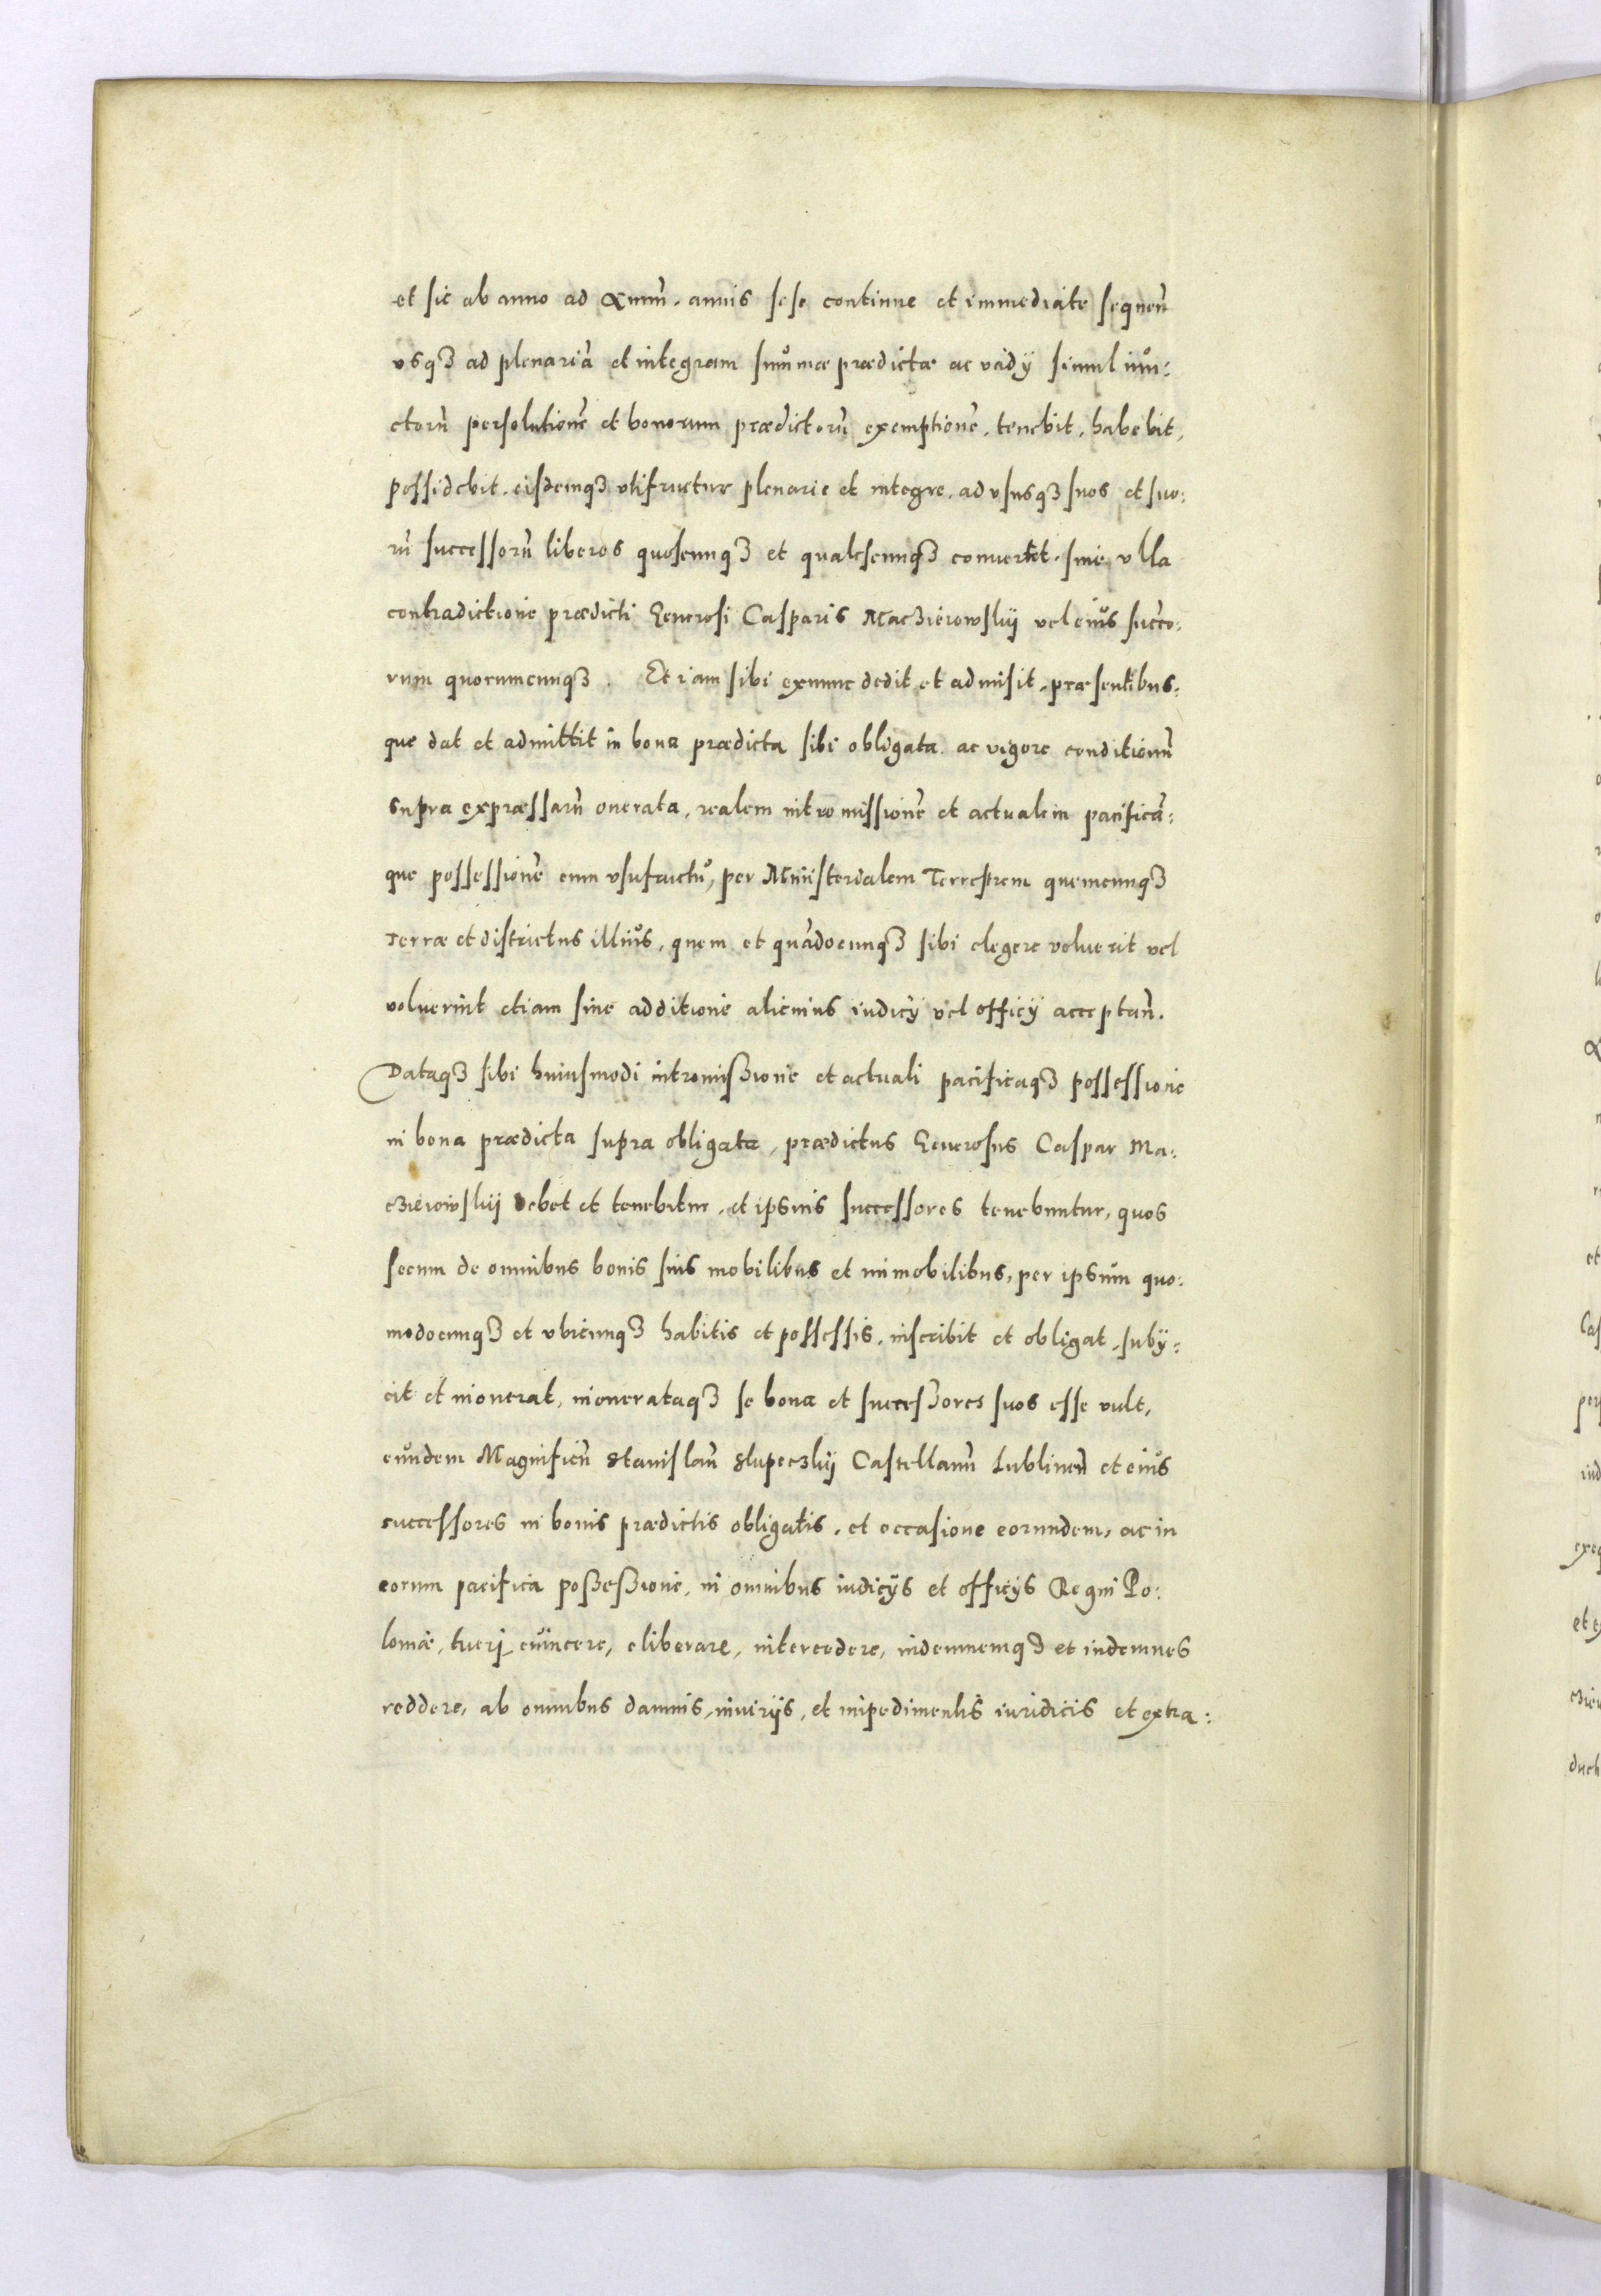 et sic ab anno ad Annū. annis sese continue et immediate sequeñ
vsqȝ ad plenariā et integram summæ prædictæ ac vadÿ simul iun:
ctorū persolutionē et bonorum prædictorū exemptionē, tenebit, habebit,
possidebit, eisdemqȝ utifruetur plenarie et integre, ad vsusqȝ suos et suo:
rū successorū liberos quoscunqȝ et qualescunqȝ convertet. sine vlla
contradictione prædicti Generosi Casparis Maczieiowskij vel eius succo:
rum quorumcunqȝ. Et iam sibi exnunc dedit et admisit, præsentibus:
que dat et admittit in bona prædicta sibi obligata ac vigore conditionū
supra expræssarū onerata, realem intromissionē et actualem pacificā:
que possessionē cum vsufructu, per Ministerialem Terrestrem quemcunqȝ
Terræ et districtus illius, quem et quādocunqȝ sibi elegere voluerit vel
voluerint etiam sine additione alicuius iudicÿ vel officÿ acceptañ.
Dataqȝ sibi huiusmodi intromißione et actuali pacificaqȝ possessione
in bona prædicta supra obligata, prædictus Generosus Caspar Ma:
czieiowskij debet et tenebitur, et ipsius successores tenebuntur, quos
secum de omnibus bonis suis mobilibus et immobilibus, per ipsum quo:
modocunqȝ et vbicunqȝ habitis et possessis, inscribit et obligat, subÿ:
cit et inonerat, inonerataqȝ se bona et succeßores suos esse vult,
eundem Magnificū Stanislaū Slupeczkij Castellanū Lublineñ et eius
successores in bonis prædictis obligatis, et occasione eorundem, ac in
eorum pacifica poßeßione, in omnibus iudicÿs et officÿs Regni Po:
loniæ, tueri, euincere, eliberare, intercedere, indemnemqȝ et indemnes
reddere, ab omnibus damnis, iniurijs, et impedimentis iuridicis et extra: